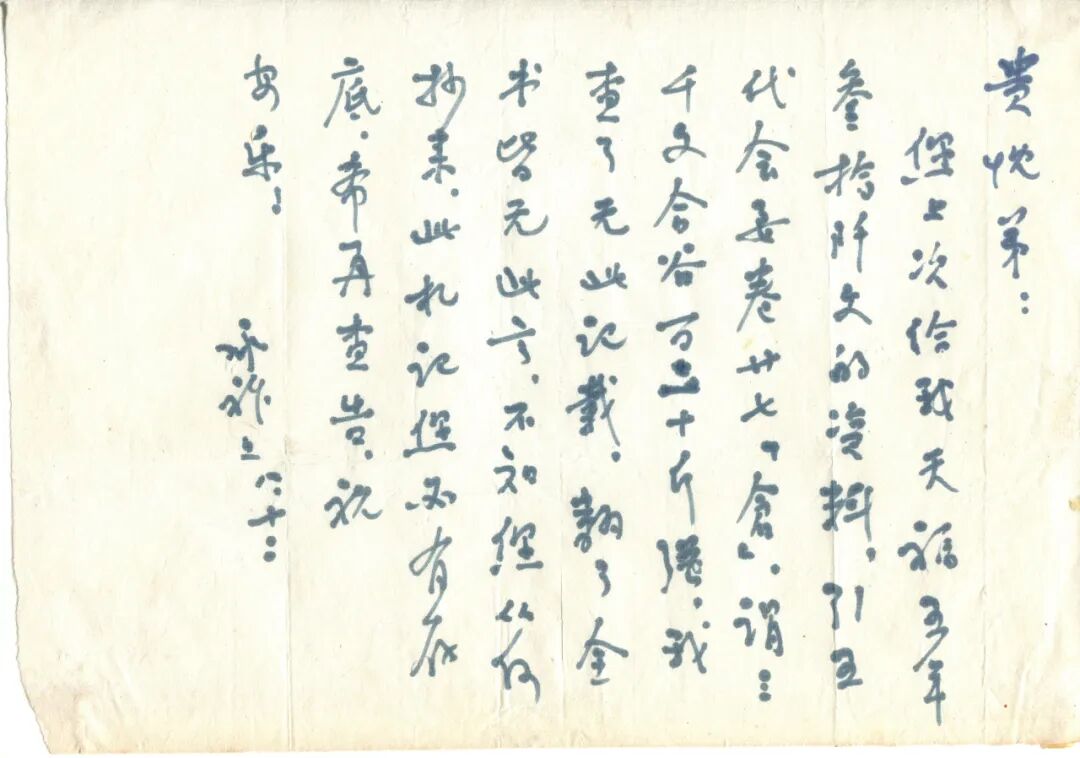 贵忱弟：
您上次给我天福五年
叁拾阡文的资料，引五
代会要卷廿七「倉」，谓：
千文合谷百二十斤强，我
查了无此记载，翻了全
书皆无此言，不知您从何
抄来，此札记您必有存
底，希再查告，祝
安乐！
承祚上 八、十二